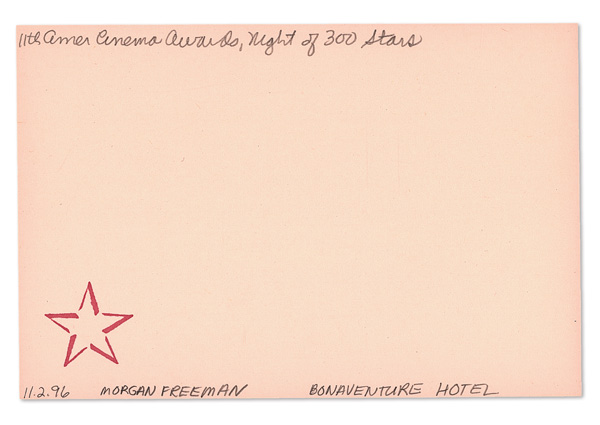 11th Amer Cinema Awards, Night of 300 Stars
11.2.96 MORGAN FREEMAN BONAVENTURE HOTEL